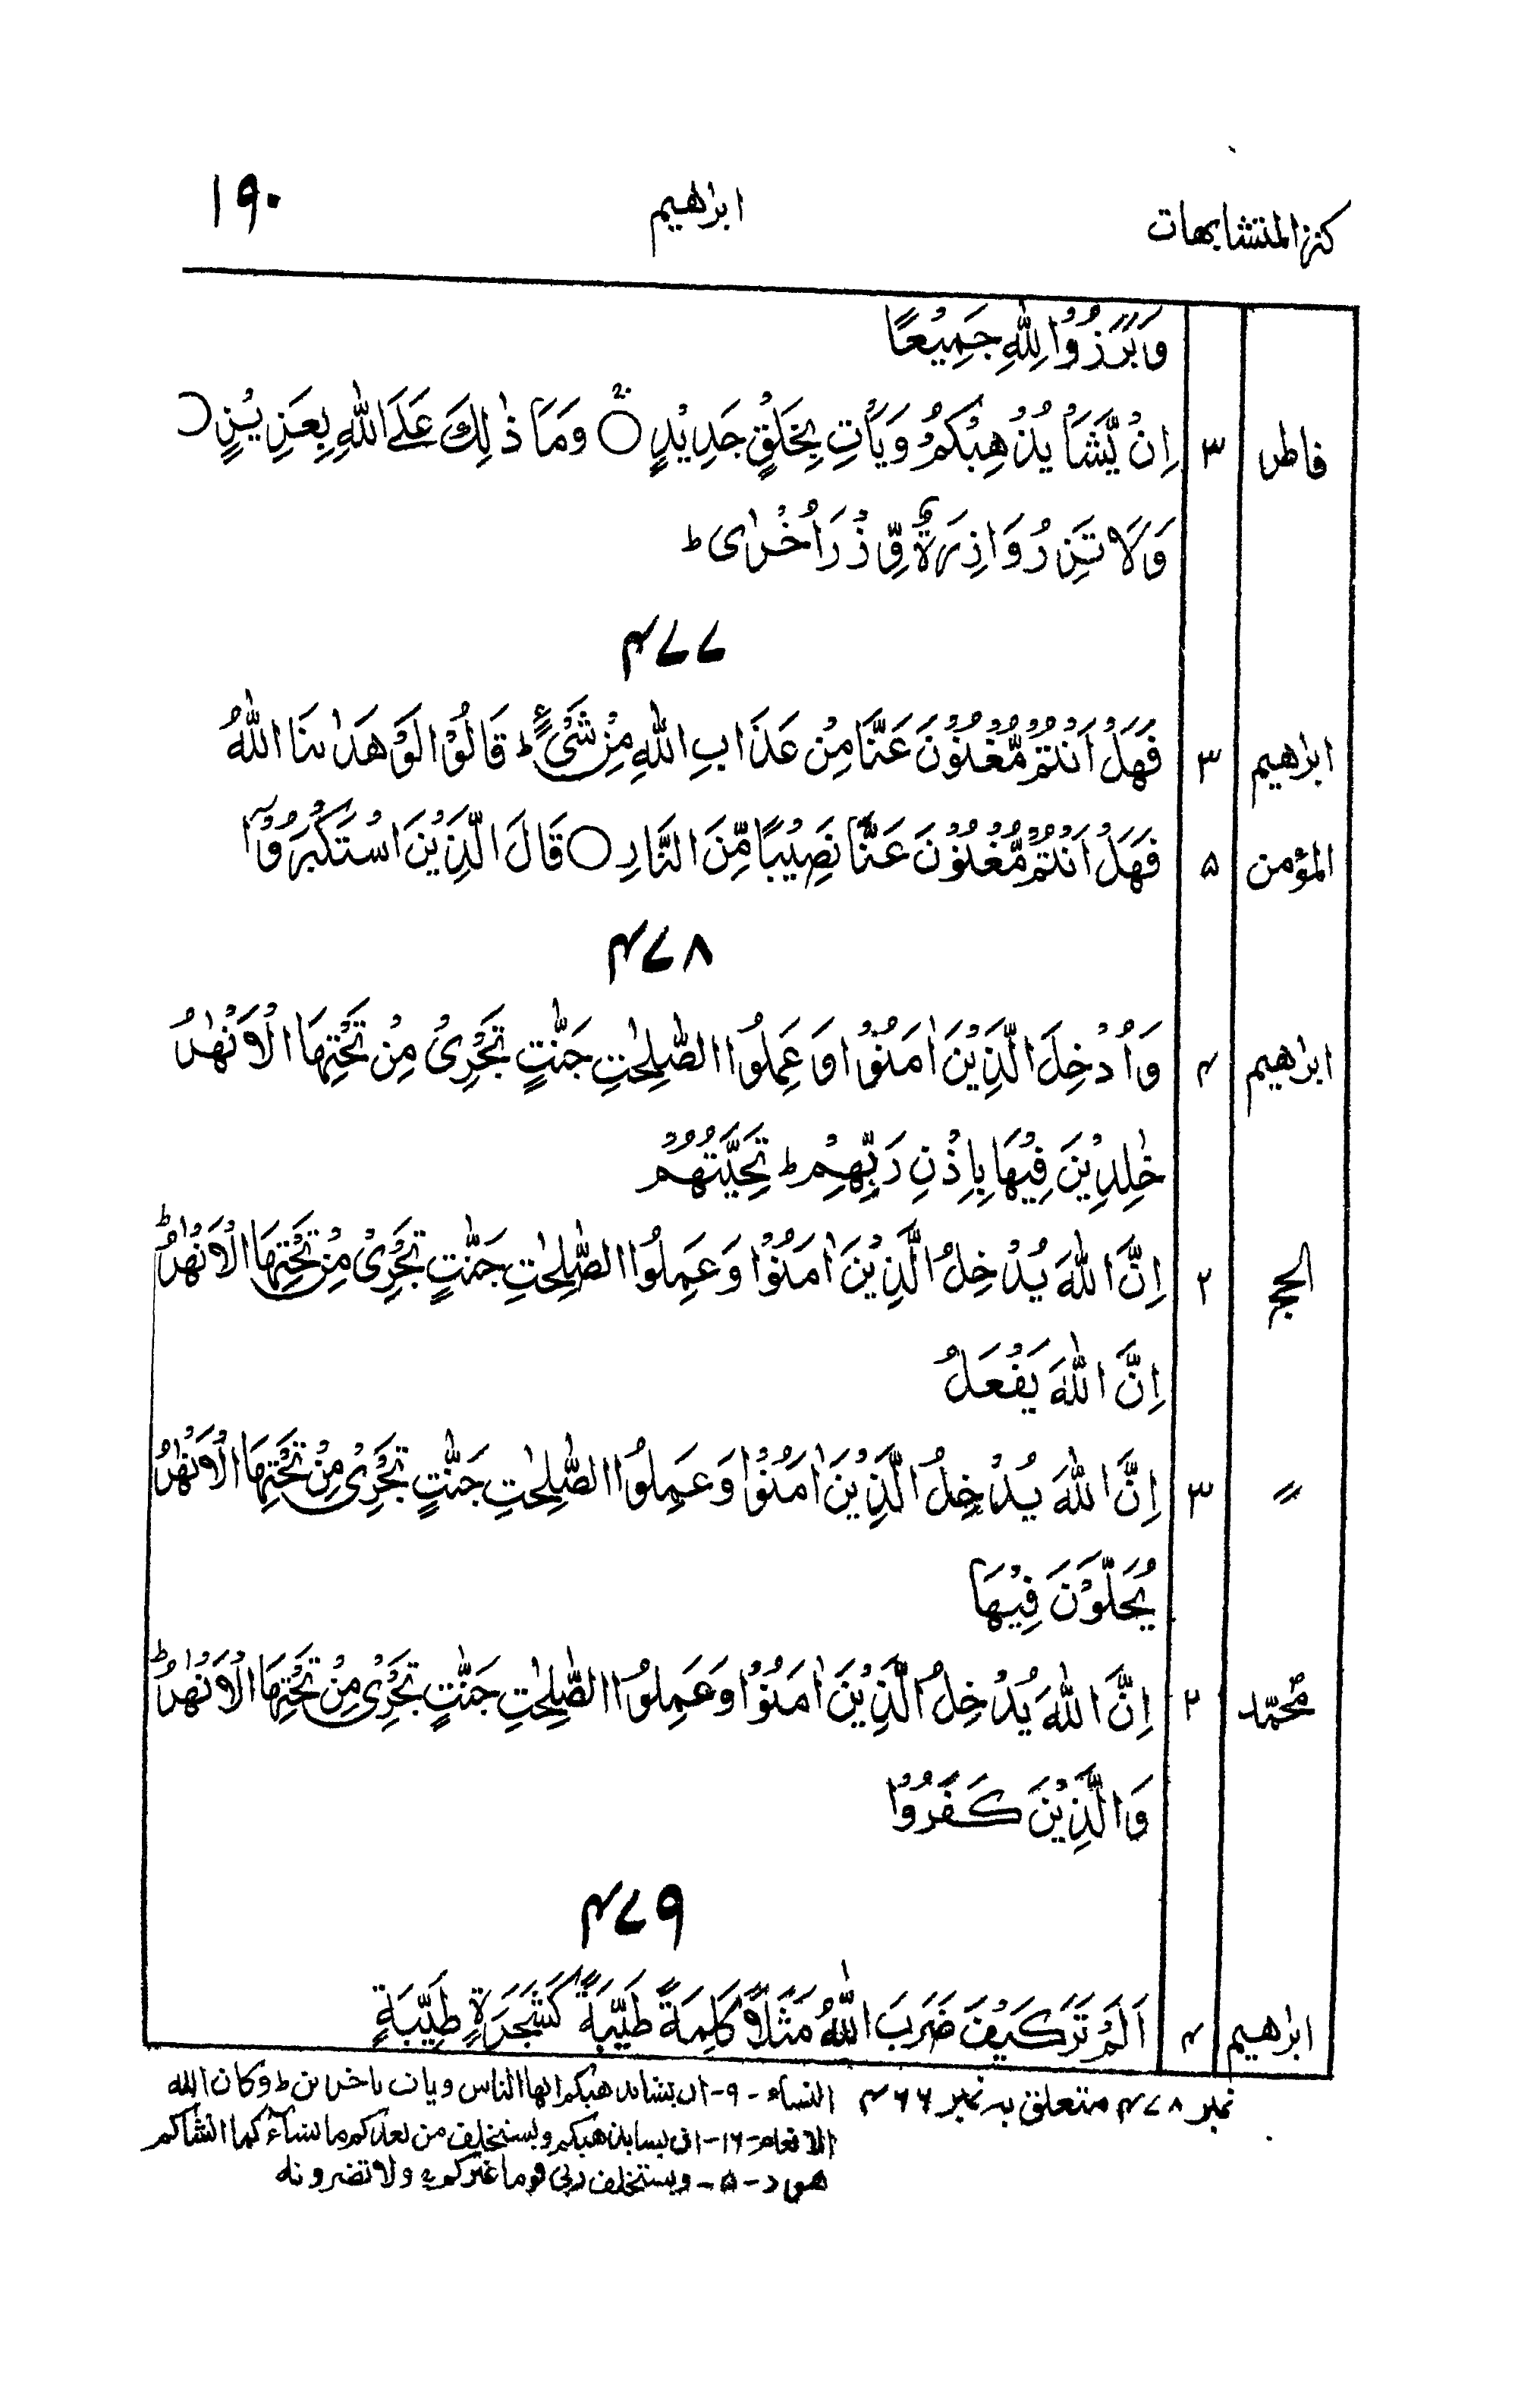 كنز المتشابهات ابراهيم ١٩٠
وَبَرَزُوْا لِلّٰهِ جَمِيْعًا
فاطر ٣ اِنْ يَّشَاْ يُذْهِبْكُمْ وَيَاْتِ بِخَلْقٍ جَدِيْدٍ ○ وَمَا ذٰلِكَ عَلَى اللّٰهِ بِعَزِيْزٍ ○
وَلَا تَزِرُ وَازِرَةٌ وِّزْرَ اُخْرٰى ط
۴۷۷
ابرٰهيم ٣ فَهَلْ اَنْتُمْ مُّغْنُوْنَ عَنَّا مِنْ عَذَابِ اللّٰهِ مِنْ شَيْءٍ ط قَالُوْا لَوْ هَدٰىنَا اللّٰهُ
المؤمن ۵ فَهَلْ اَنْتُمْ مُّغْنُوْنَ عَنَّا نَصِيْبًا مِّنَ النَّارِ ○ قَالَ الَّذِيْنَ اسْتَكْبَرُوْٓا
۴۷۸
ابرٰهيم ۴ وَاُدْخِلَ الَّذِيْنَ اٰمَنُوْا وَعَمِلُوا الصّٰلِحٰتِ جَنّٰتٍ تَجْرِيْ مِنْ تَحْتِهَا الْاَنْهٰرُ
خٰلِدِيْنَ فِيْهَا بِاِذْنِ رَبِّهِمْ ط تَحِيَّتُهُمْ
الحج ٢ اِنَّ اللّٰهَ يُدْخِلُ الَّذِيْنَ اٰمَنُوْا وَعَمِلُوا الصّٰلِحٰتِ جَنّٰتٍ تَجْرِيْ مِنْ تَحْتِهَا الْاَنْهٰرُ ط
اِنَّ اللّٰهَ يَفْعَلُ
〃 ٣ اِنَّ اللّٰهَ يُدْخِلُ الَّذِيْنَ اٰمَنُوْا وَعَمِلُوا الصّٰلِحٰتِ جَنّٰتٍ تَجْرِيْ مِنْ تَحْتِهَا الْاَنْهٰرُ
يُحَلَّوْنَ فِيْهَا
محمّد ٢ اِنَّ اللّٰهَ يُدْخِلُ الَّذِيْنَ اٰمَنُوْا وَعَمِلُوا الصّٰلِحٰتِ جَنّٰتٍ تَجْرِيْ مِنْ تَحْتِهَا الْاَنْهٰرُ ط
وَالَّذِيْنَ كَفَرُوْا
۴۷۹
ابرٰهيم ۴ اَلَمْ تَرَ كَيْفَ ضَرَبَ اللّٰهُ مَثَلًا كَلِمَةً طَيِّبَةً كَشَجَرَةٍ طَيِّبَةٍ
نمبر ۴۷۸ متعلق به نمبر ۴۶۶ النساء - ٩ - ان يشا يذهبكم ايها الناس ويات باخرين ط وكان الله
الانعام - ١٦ - ان يشا يذهبكم ويستخلف من بعدكم ما يشاء كما انشاكم
هود - ۵ - ويستخلف ربي قوما غيركم ج ولا تضرونه